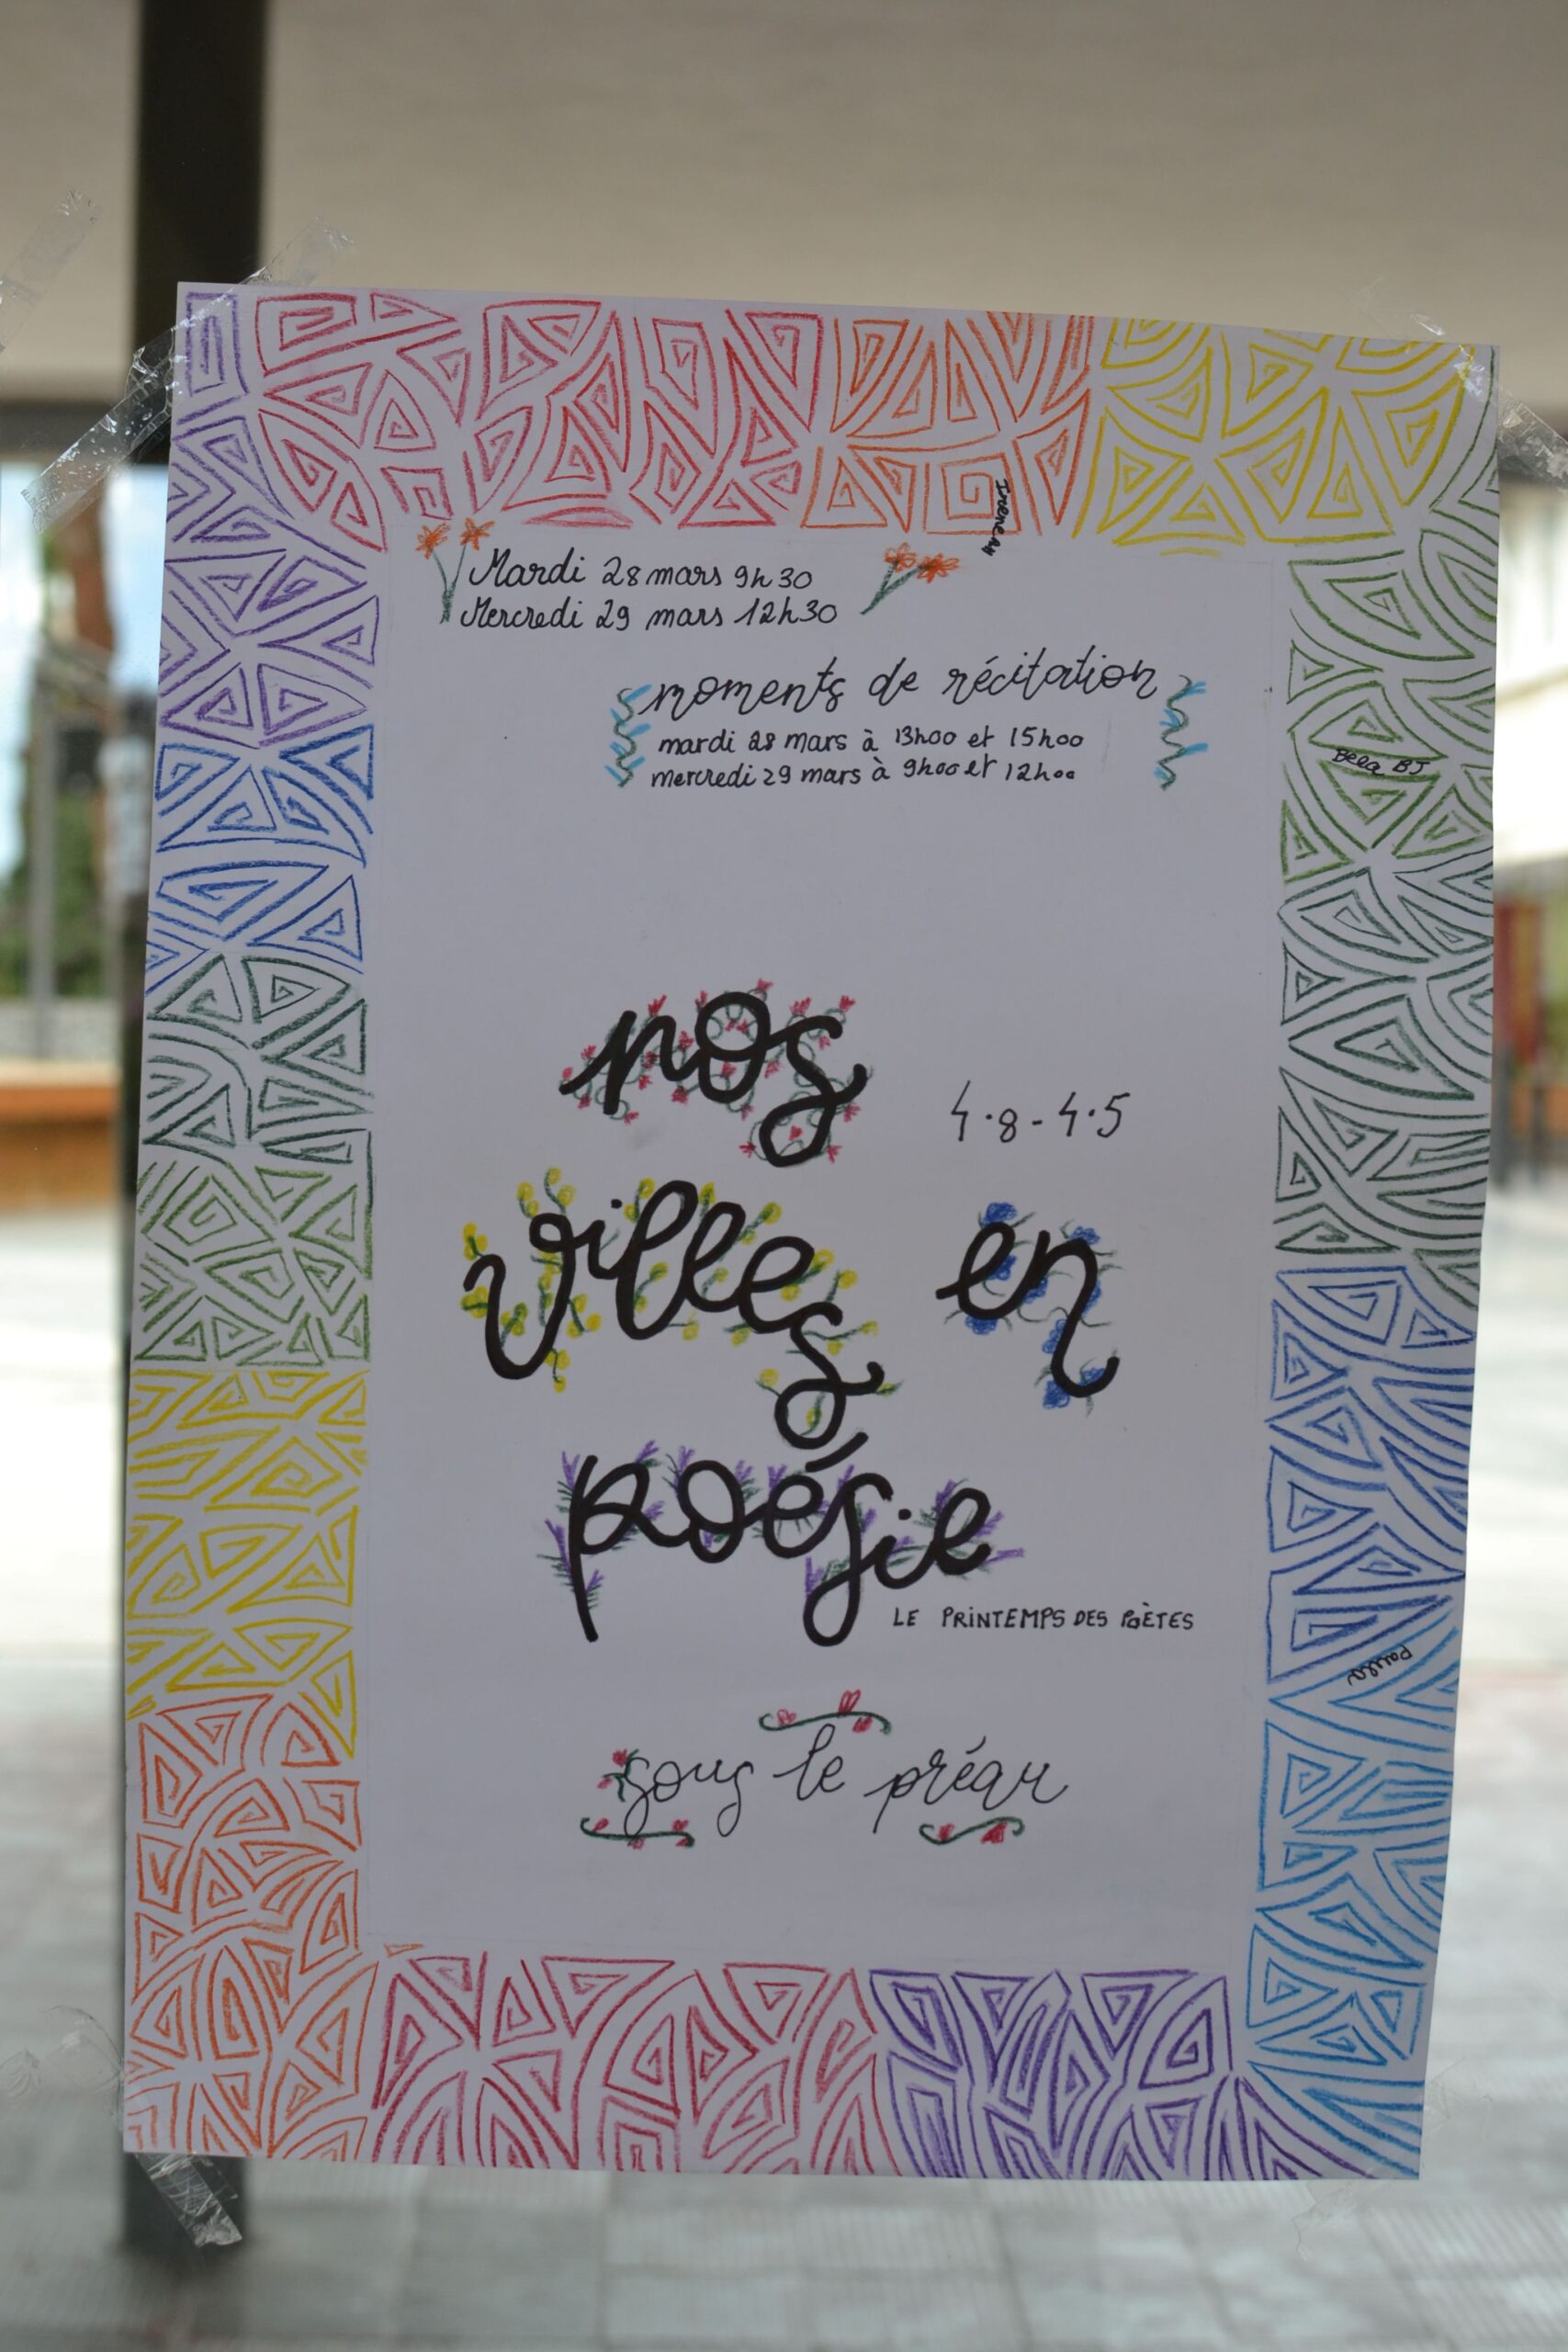 Mardi 28 mars 9h30
Mercredi 29 mars 12h30
moments de récitation
mardi 28 mars à 13h00 et 15h00
mercredi 29 mars à 9h00 et 12h00
Bela BJ
nos
4.8-4.5
villes en
poésie
LE PRINTEMPS DES POÈTES
Paula
sous le préau